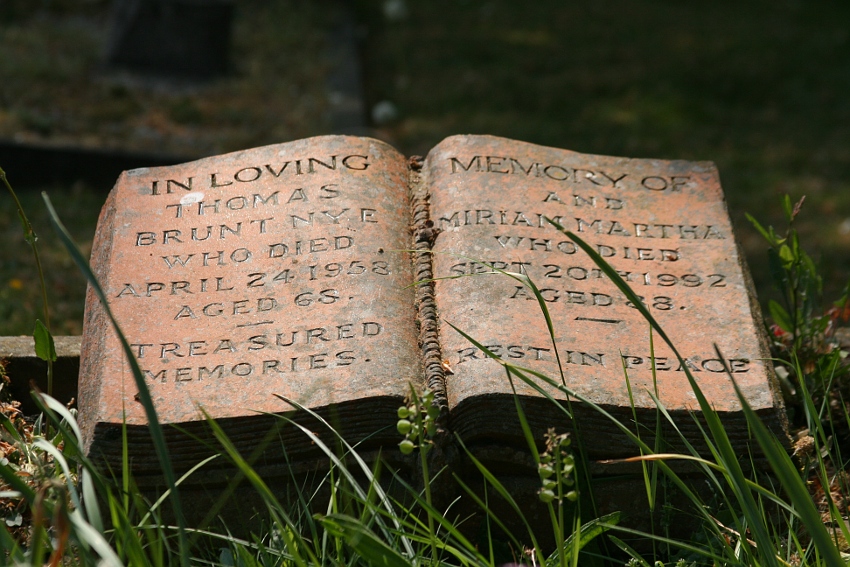 IN LOVING
THOMAS
BRUNT NYE
WHO DIED
APRIL 24 1958
AGED 68.
TREASURED
MEMORIES.
MEMORY OF
AND
MIRIAM MARTHA
WHO DIED
SEPT 20TH 1992
AGED 88.
REST IN PEACE